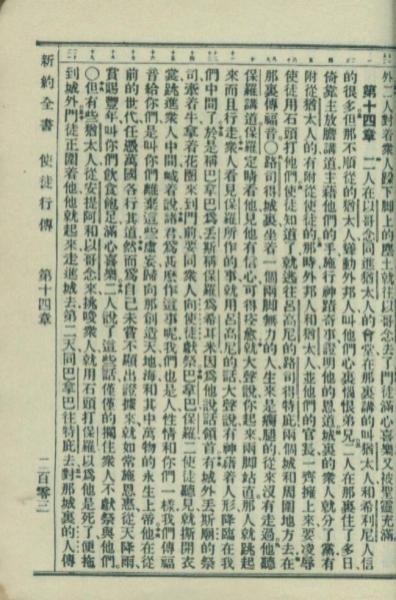 外二人對着衆人跺下脚上的塵土就往以哥念去了門徒滿心喜樂又被聖靈充滿
第十四章 二人在以哥念同進猶太人的會堂在那裏講的叫猶太人和希利尼人信
的很多但那不順從的猶太人聳動外邦人叫他們心裏惱恨弟兄二人在那裏住了多日
倚靠主放膽講道主藉他們的手施行神蹟奇事證明他的恩道城裏的衆人就分了黨有
附從猶太人的有附從使徒的那時外邦人和猶太人並他們的官長一齊擁上來要凌辱
使徒用石頭打他們使徒知道了就逃往呂高尼的路司得特庇兩個城和周圍地方去在
那裏傳福音○路司得城裏坐着一個兩脚無力的人生來是瘸腿的從來沒有走過他聽
保羅講道保羅定睛看他見他有信心可得痊愈就大聲說你起來兩脚站直那人就跳起
來而且行走衆人看見保羅所作的事就用呂高尼的話大聲說有神藉着人形降臨在我
們中間了於是稱巴拿巴爲丟斯稱保羅爲希耳米因爲他說話領首有城外丟斯廟的祭
司牽着牛拿着花圈來到門前要同衆人向使徒獻祭巴拿巴保羅二使徒聽見就撕開衣
裳跳進衆人中間喊着說諸君爲甚麽作這事呢我們也是人性情和你們一樣我們傳福
音給你們是叫你們離棄這些虛妄歸向那創造天地海和其中萬物的永生上帝他在從
前的世代任憑萬國各行其道然而爲自己未嘗不顯出證據來就如常施恩惠從天降雨
賞賜豐年叫你們飮食飽足滿心喜樂二人說了這些話僅僅的攔住衆人不獻祭與他們
○但有些猶太人從安提阿和以哥念來挑唆衆人就用石頭打保羅以爲他是死了便拖
到城外門徒正圍着他他就起來走進城去第二天同巴拿巴往特庇去對那城裏的人傳
新約全書 使徒行傳 第十四章 二百零三